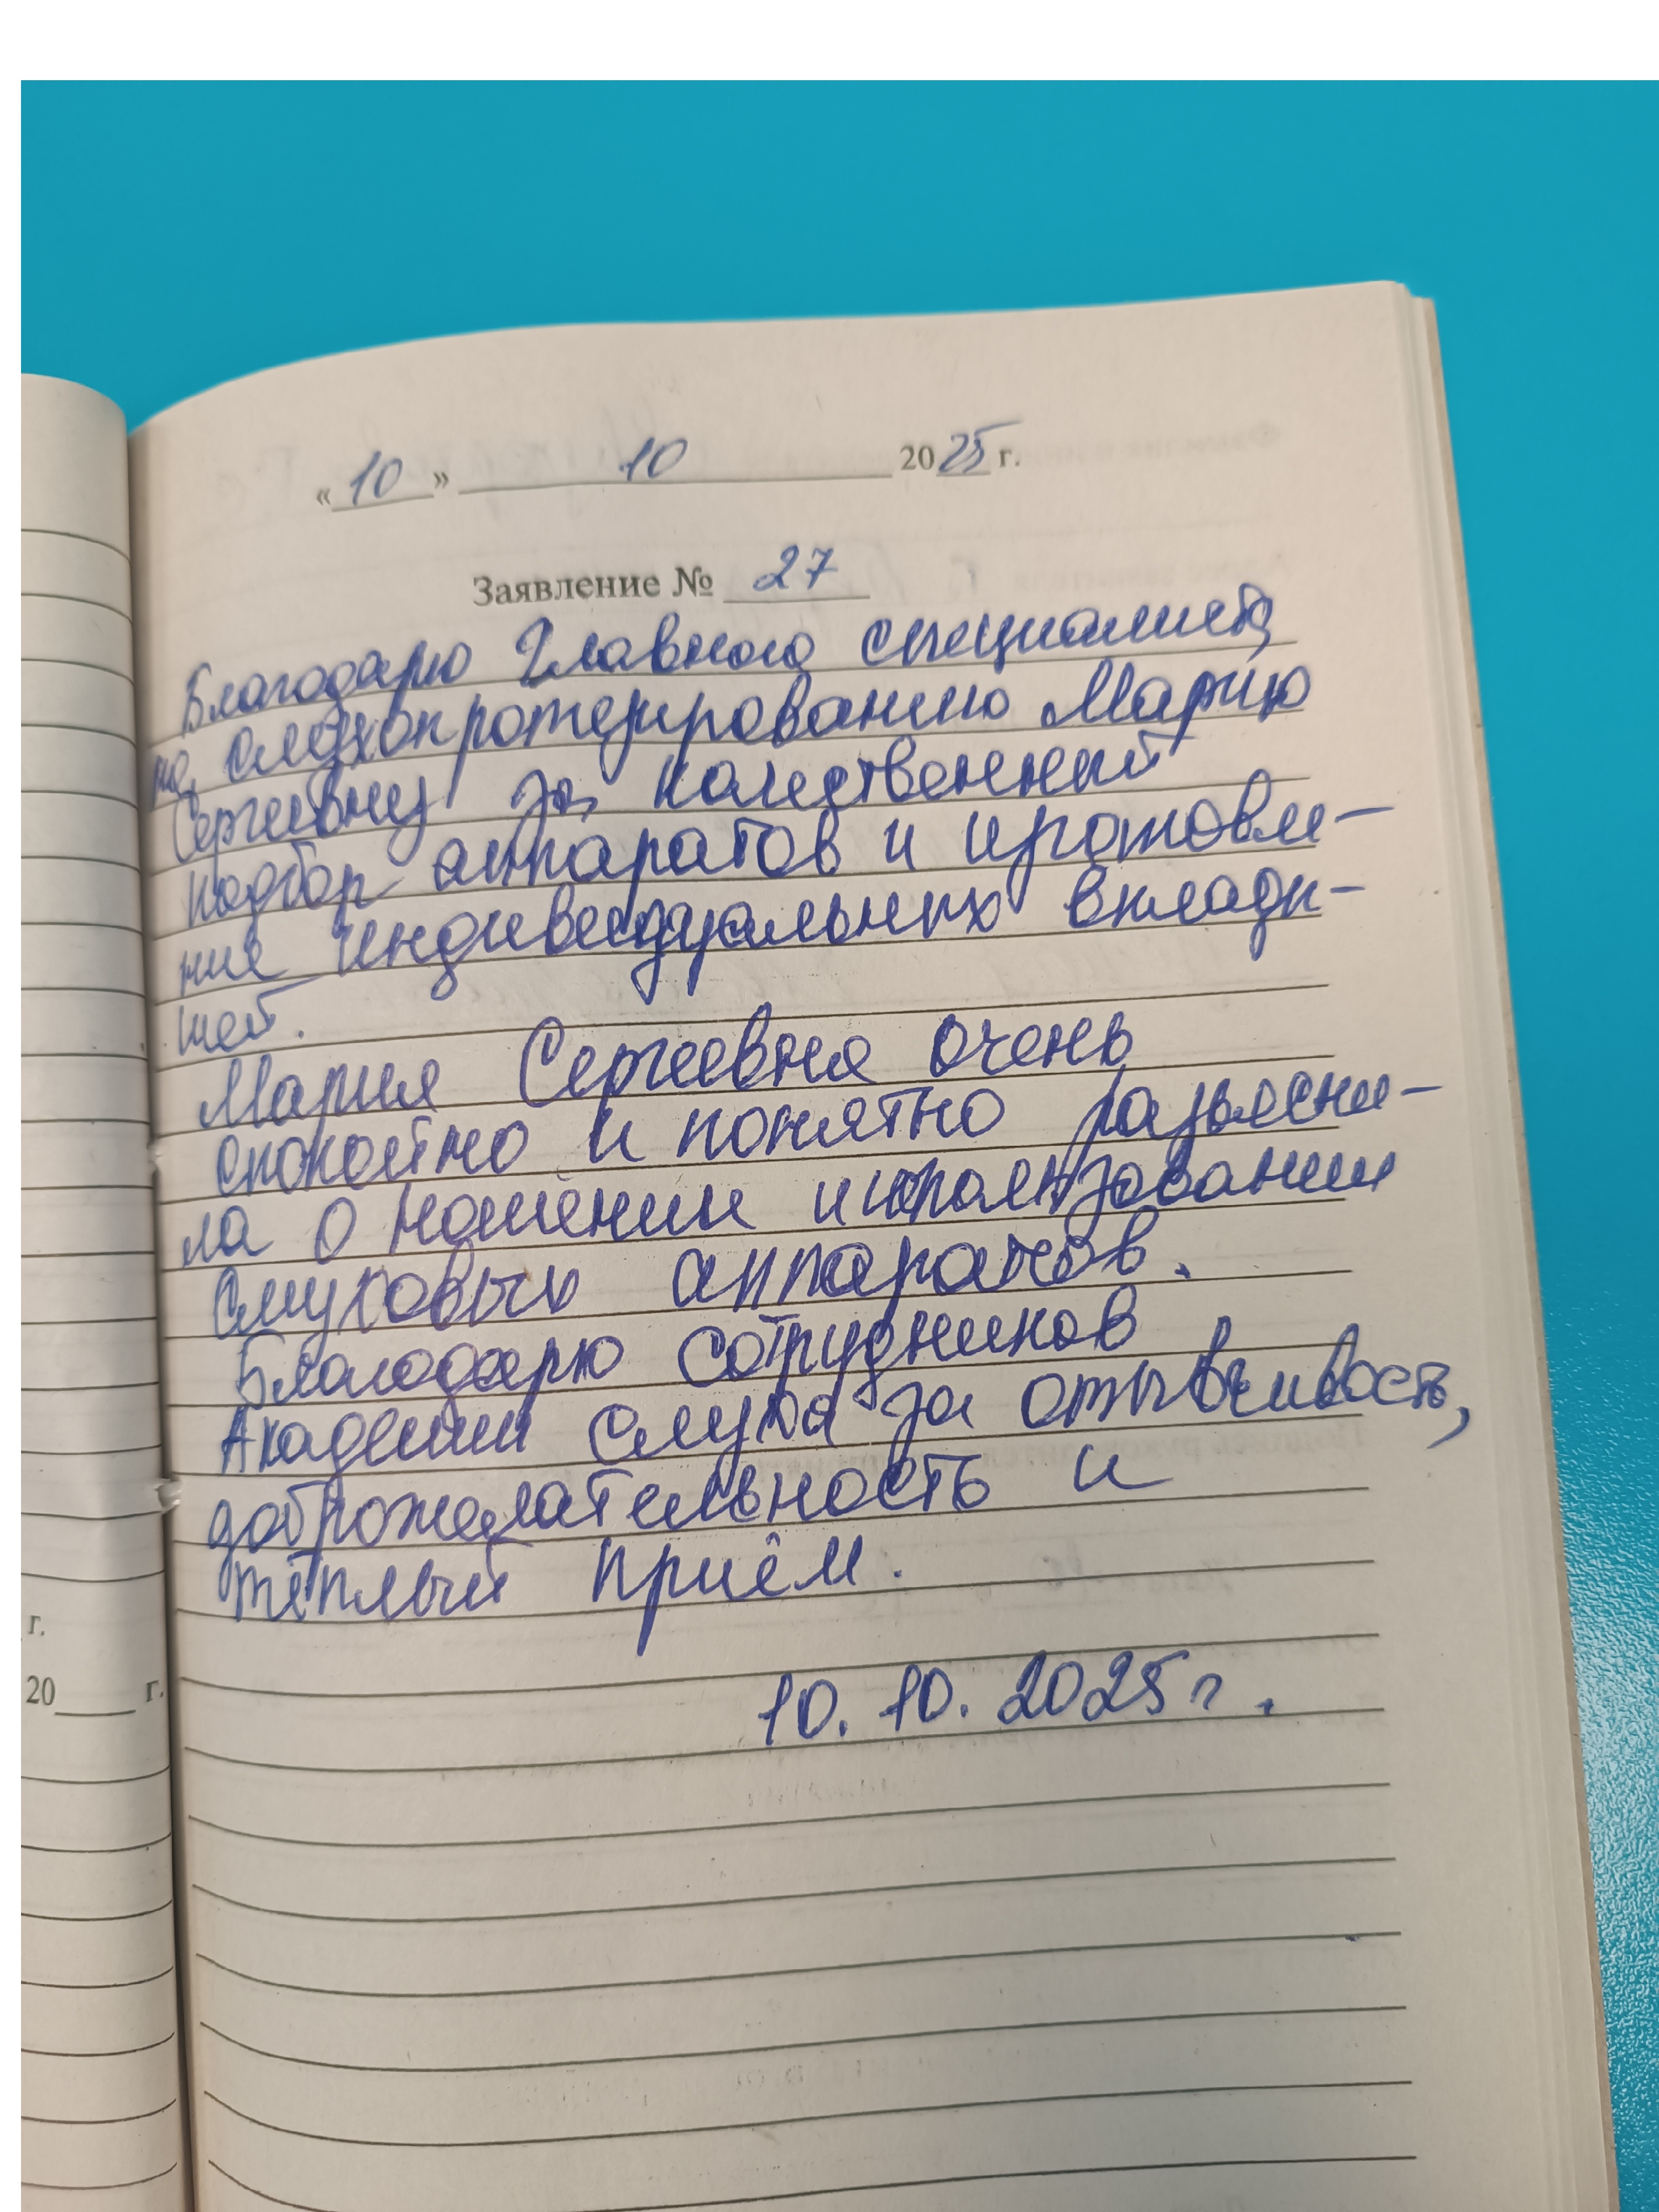 «10» 10 2025 г.
Заявление № 27
Благодарю Главного специалиста
по слухопротезированию Марию
Сергеевну за качественный
подбор аппаратов и изготовле-
ние индивидуальных вклады-
шей.
Мария Сергеевна очень
спокойно и понятно разъясни-
ла о ношении и использовании
слуховых аппаратов.
Благодарю сотрудников
Академии слуха за отзывчивость,
доброжелательность и
тёплый приём.
10.10.2025 г.
г.
20 г.